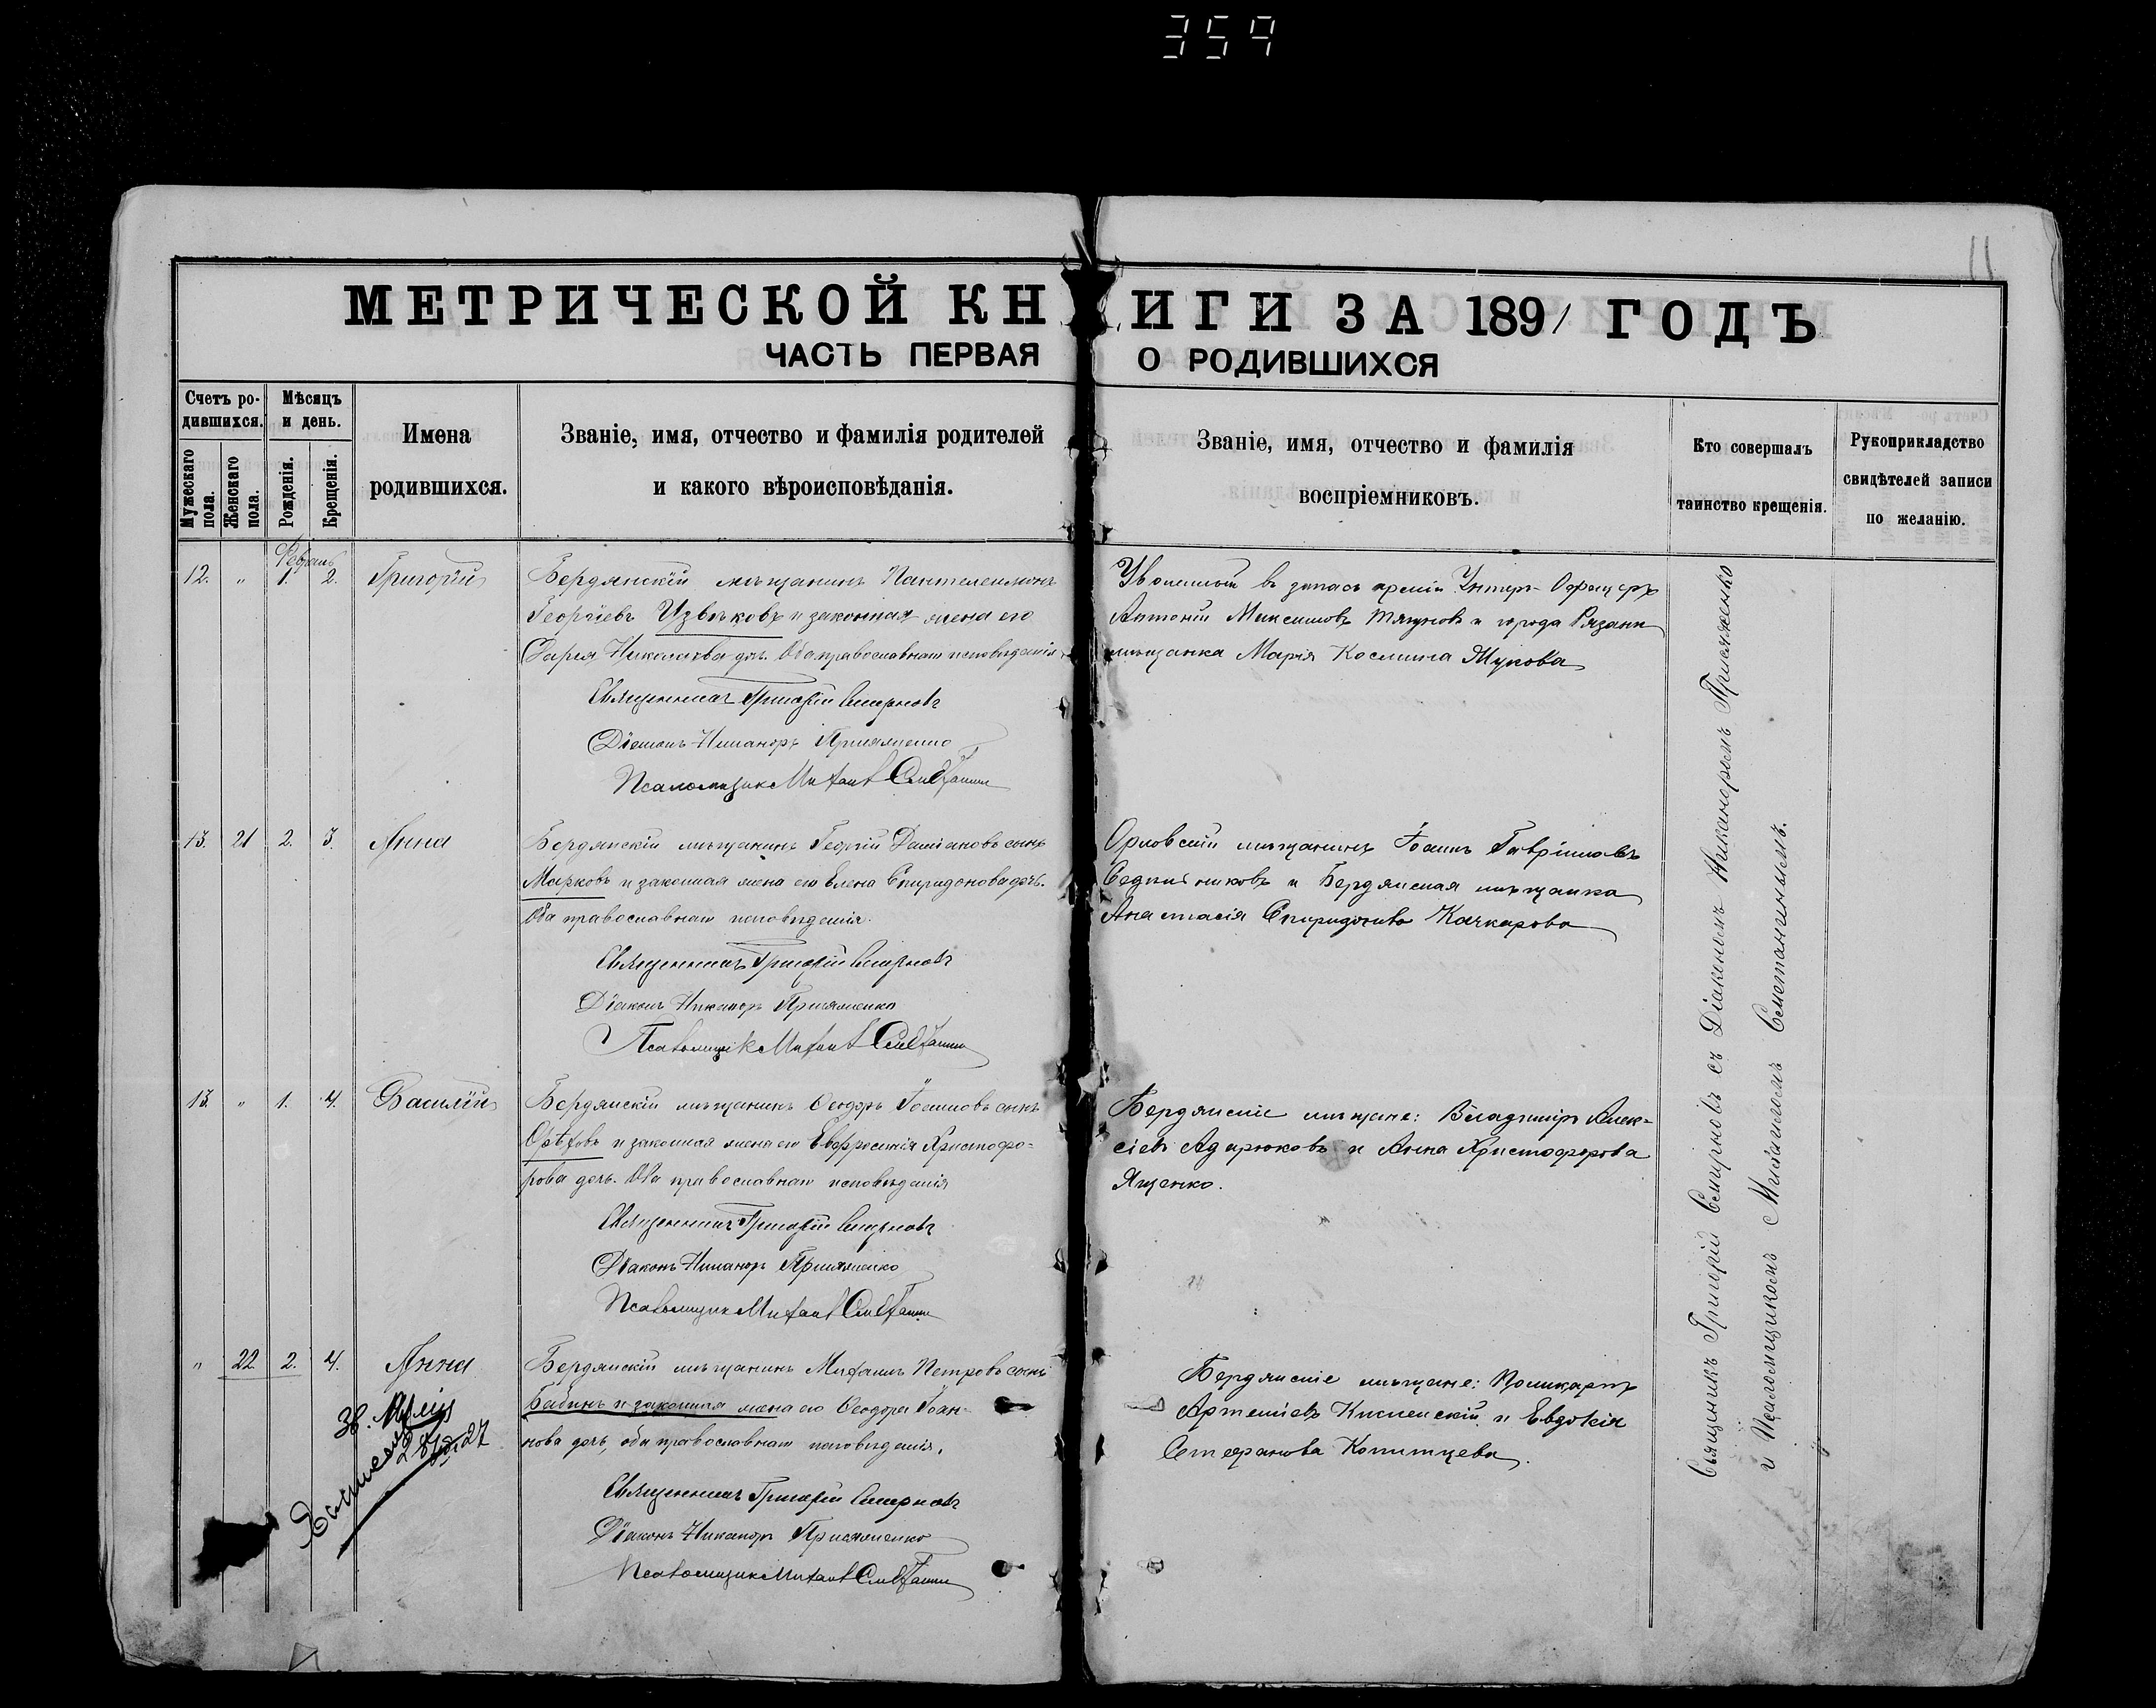 359
11
МЕТРИЧЕСКОЙ КНИГИ ЗА 1891 ГОДЪ
ЧАСТЬ ПЕРВАЯ О РОДИВШИХСЯ
Счетъ ро-
дившихся.
Мужескаго пола.
Женскаго пола.
Мѣсяцъ
и день.
Рожденія.
Крещенія.
Имена
родившихся.
Званіе, имя, отчество и фамилія родителей
и какого вѣроисповѣданія.
Званіе, имя, отчество и фамилія
воспріемниковъ.
Кто совершалъ
таинство крещенія.
Рукоприкладство
свидѣтелей записи
по желанію.
12. " 1. 2. Григорій
Бердянскій мѣщанинъ Пантелеимонъ
Георгіевъ Извѣковъ и законная жена его
Николаева дчь. Оба православнаго исповѣданія
Священникъ Григорій Смирновъ
Діаконъ Никаноръ Присяженко
Псаломщикъ Михаилъ
Уволенный въ запасъ арміи Унтеръ-Офицеръ
Антоній Максимовъ и города Рязани
мѣщанка Марія Космина Жукова
13. 21 2. 3. Анна
Бердянскій мѣщанинъ Георгій Даміановъ сынъ
Марковъ и законная жена его Елена Спиридонова дчь.
Оба православнаго исповѣданія.
Священникъ Григорій Смирновъ
Діаконъ Никаноръ Присяженко
Псаломщикъ Михаилъ
Орловскій мѣщанинъ Іоаннъ Гавріиловъ
и Бердянская мѣщанка
Анастасія Спиридонова Качкарова
13. " 1. 4. Василій
Бердянскій мѣщанинъ Ѳеодоръ Іоанновъ сынъ
Орѣховъ и законная жена его Евфросинія Христофо-
рова дочь. Оба православнаго исповѣданія
Священникъ Григорій Смирновъ
Діаконъ Никаноръ Присяженко
Псаломщикъ Михаилъ
Бердянскіе мѣщане: Владиміръ Алек-
сіевъ Адарюковъ и Анна Христофорова
Ященко.
" 22 2. 4. Анна
Бердянскій мѣщанинъ Михаилъ Петровъ сынъ
Бабинъ и законная жена его Ѳеодора Іоан-
нова дочь, оба православнаго исповѣданія.
Священникъ Григорій Смирновъ
Діаконъ Никаноръ Присяженко
Псаломщикъ Михаилъ
Бердянскіе мѣщане: Поликарпъ
Артеміевъ и Евдокія
Стефанова Копитцева.
Священникъ Григорій Смирновъ съ Діакономъ Никаноромъ Присяженко
и Псаломщикомъ Михаиломъ